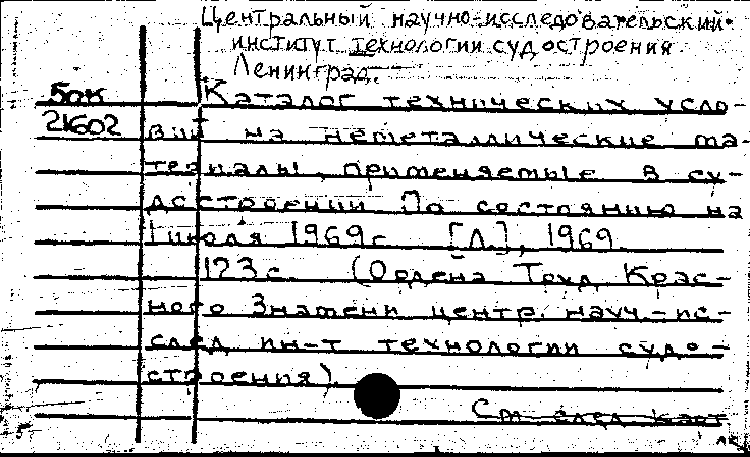 Центральный научно-исследовательский
институт технологии судостроения.
Ленинград.
Бок Каталог технических усло-
21602 вий на неметаллические ма-
териалы, применяемые в су-
достроении. По состоянию на
1 июля 1969 г. [Л.], 1969.
123 с. (Ордена Труд. Крас-
ного Знамени центр. науч.-ис-
след. ин-т технологии судо-
строения).
См. след. карт